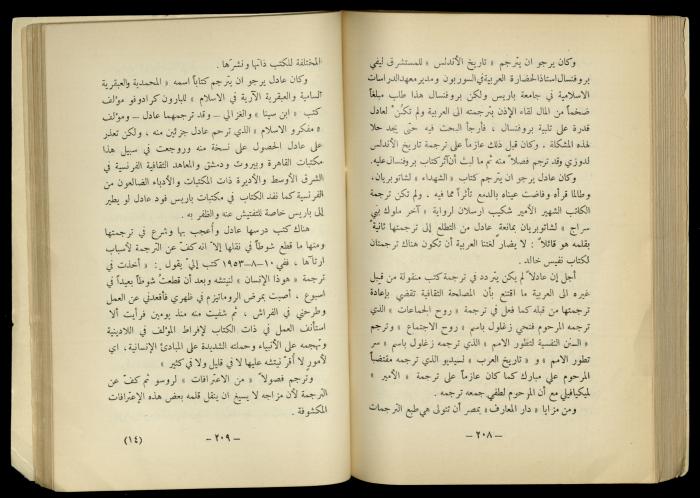 وكان يرجو ان يترجم « تاريخ الأندلس » للمستشرق ليفي
بروفنسال استاذ الحضارة العربية في السوربون ومدير معهد الدراسات
الاسلامية في جامعة باريس ولكن بروفنسال هذا طلب مبلغاً
ضخماً من المال لقاء الإذن بترجمته الى العربية ولم تكن لعادل
قدرة على تلبية بروفنسال ، فأرجأ البحث فيه حتى يجد حلا
لهذه المشكلة . وكان قبل ذلك عازماً على ترجمة تاريخ الأندلس
لدوزي وقد ترجم فصلاً منه ثم ما لبث أن آثر كتاب بروفنسال عليه.
وكان عادل يرجو ان يترجم كتاب « الشهداء » لشاتوبريان،
وطالما قرأه وفاضت عيناه بالدمع تأثراً مما فيه ، ولم تكن ترجمة
الكاتب الشهير الأمير شكيب ارسلان لرواية « آخر ملوك بني
سراج » لشاتوبريان بمانعةٍ عادل من التطلع إلى ترجمتها ثانيةً
بقلمه هو قائلاً : لا يضار لغتنا العربية أن تكون هناك ترجمتان
لكتاب نفيس خالد .
أجل إن عادلاً لم يكن يتردد في ترجمة كتب منقولة من قبل
غيره الى العربية ما اقتنع بأن المصلحة الثقافية تقضي بإعادة
ترجمتها من قبله كما فعل في ترجمة « روح الجماعات » الذي
ترجمه المرحوم فتحي زغلول باسم « روح الاجتماع » وترجم
« السنن النفسية لتطور الامم » الذي ترجمه زغلول باسم « سر
تطور الامم » و « تاريخ العرب » لسيديو الذي ترجمه مقتضباً
المرحوم علي مبارك كما كان عازماً على ترجمة « الأمير »
لميكيافيلي مع أن المرحوم لطفي جمعه ترجمه .
ومن مزايا « دار المعارف » بمصر أن تتولى هي طبع الترجمات
- ٢٠٨ -
المختلفة للكتب ذاتها ونشرها .
وكان عادل يرجو ان يترجم كتاباً اسمه « المحمدية والعبقرية
السامية والعبقرية الآرية في الاسلام » للبارون كرادوفو مؤلف
كتب « ابن سينا » والغزالي – وقد ترجمهما عادل – ومؤلف
« مفكرو الاسلام » الذي ترجم عادل جزئين منه ، ولكن تعذر
على عادل الحصول على نسخة منه وروجعت في سبيل هذا
مكتبات القاهرة وبيروت ودمشق والمعاهد الثقافية الفرنسية في
الشرق الأوسط والأديرة ذات المكتبات والأدباء الضالعون من
الفرنسية كما نفد الكتاب في مكتبات باريس فود عادل لو يطير
إلى باريس خاصة للتفتيش عنه والظفر به .
هناك كتب درسها عادل وأُعجب بها وشرع في ترجمتها
ومنها ما قطع شوطاً في نقلها إلا انه كفّ عن الترجمة لأسباب
ارتآها ، ففي ١٠-٨-١٩٥٣ كتب إليّ يقول : « أخذت في
ترجمة « هوذا الإنسان » لنيتشه وبعد أن قطعتُ شوطاً بعيداً في
اسبوع ، أصبت بمرض الروماتيزم في ظهري فأقعدني عن العمل
وطرحني في الفراش ، ثم شفيت منه منذ يومين فرأيت ألا
استأنف العمل في ذات الكتاب لإفراط المؤلف في اللادينية
وتهجمه على الأنبياء وحملته الشديدة على المبادئ الإنسانية، اي
لأمور لا أقرّ نيتشه عليها لا في قليل ولا في كثير »
وترجم فصولاً « من الاعترافات » لروسو ثم كف عن
الترجمة لأن مزاجه لا يسيغ ان ينقل قلمه بعض هذه الإعترافات
المكشوفة .
- ٢٠٩ -
(١٤)